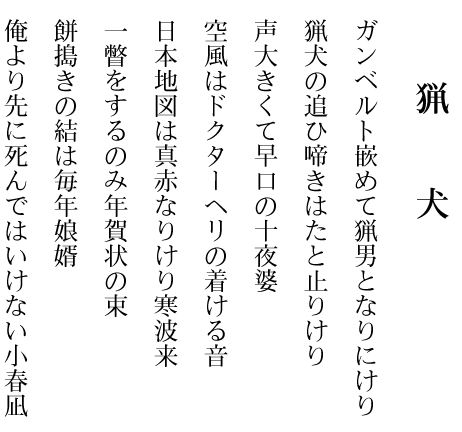 猟犬
ガンベルト嵌めて猟男となりにけり
猟犬の追ひ啼きはたと止りけり
声大きくて早口の十夜婆
空風はドクターヘリの着ける音
日本地図は真赤なりけり寒波来
一瞥をするのみ年賀状の束
餅搗きの結は毎年娘婿
俺より先に死んではいけない小春凪